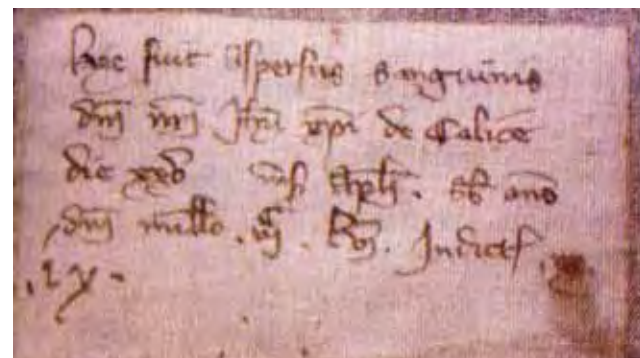 hic fuit aspersus sanguinis
dni nri Jhu xpi de Calice
die xxv mēs Aprl. sb ano
dni millo. Indict
.ix.